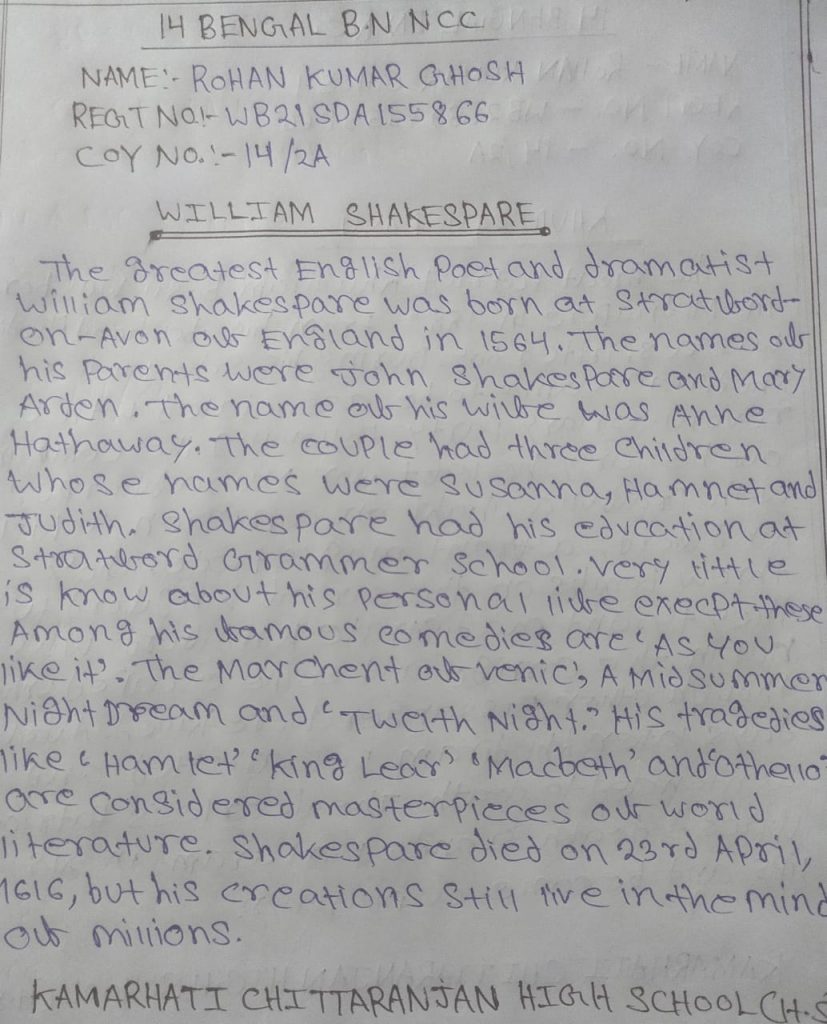 14 BENGAL B.N NCC
NAME:- ROHAN KUMAR GHOSH
REGT NO:- WB21SDA155866
COY NO.:- 14/2A
WILLIAM SHAKESPARE
The greatest English Poet and dramatist
william Shakespare was born at Stratford-
on-Avon of England in 1564. The names of
his Parents were John Shakespare and Mary
Arden. The name of his wife was Anne
Hathaway. The couple had three Children
whose names were Susanna, Hamnet and
Judith. Shakespare had his education at
Stratford Grammer School. very little
is know about his personal life execpt these
Among his famous comedies are 'As you
like it'. The Marchent of venic', A Midsummer
Night Dream and 'Twelth Night.' His tragedies
like 'Hamlet' 'king Lear' 'Macbeth' and 'Othello'
are considered masterpieces of world
literature. Shakespare died on 23rd April,
1616, but his creations still live in the mind
of millions.
KAMARHATI CHITTARANJAN HIGH SCHOOL (H.S